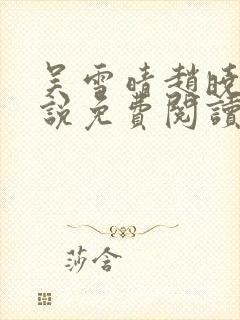 吴雪晴趙曉
說免費閱讀
莎含